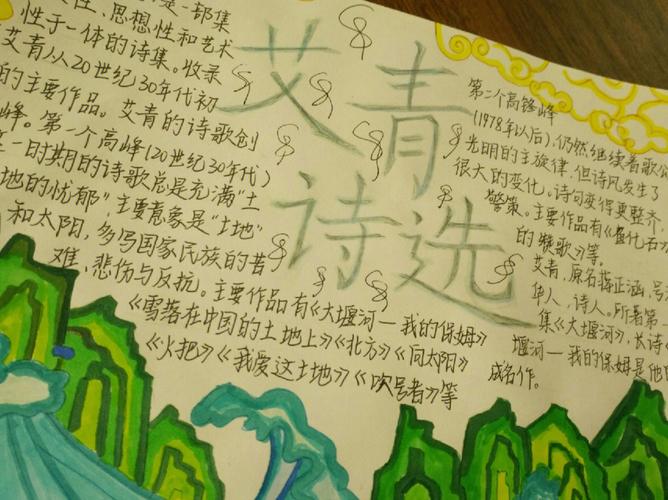 艾青
诗选
是一部集
性、思想性和艺术
性于一体的诗集。收录
艾青从20世纪30年代初
的主要作品。艾青的诗歌创
峰。第一个高峰(20世纪30年代)
一时期的诗歌总是充满"土
地的忧郁",主要意象是"土地"
和太阳,多写国家民族的苦
难,悲伤与反抗。主要作品有《大堰河—我的保姆》
《雪落在中国的土地上》《北方》《向太阳》
《火把》《我爱这土地》《吹号者》等
第二个高锋峰
(1978年以后),仍然继续着歌
光明的主旋律,但诗风发生了
很大的变化。诗句变得更整齐,
警策。主要作品有《鱼化石》
的赞歌》等。
艾青,原名蒋正涵,号
华人,诗人。所著第一
集《大堰河》,长诗《
堰河—我的保姆是他
成名作。